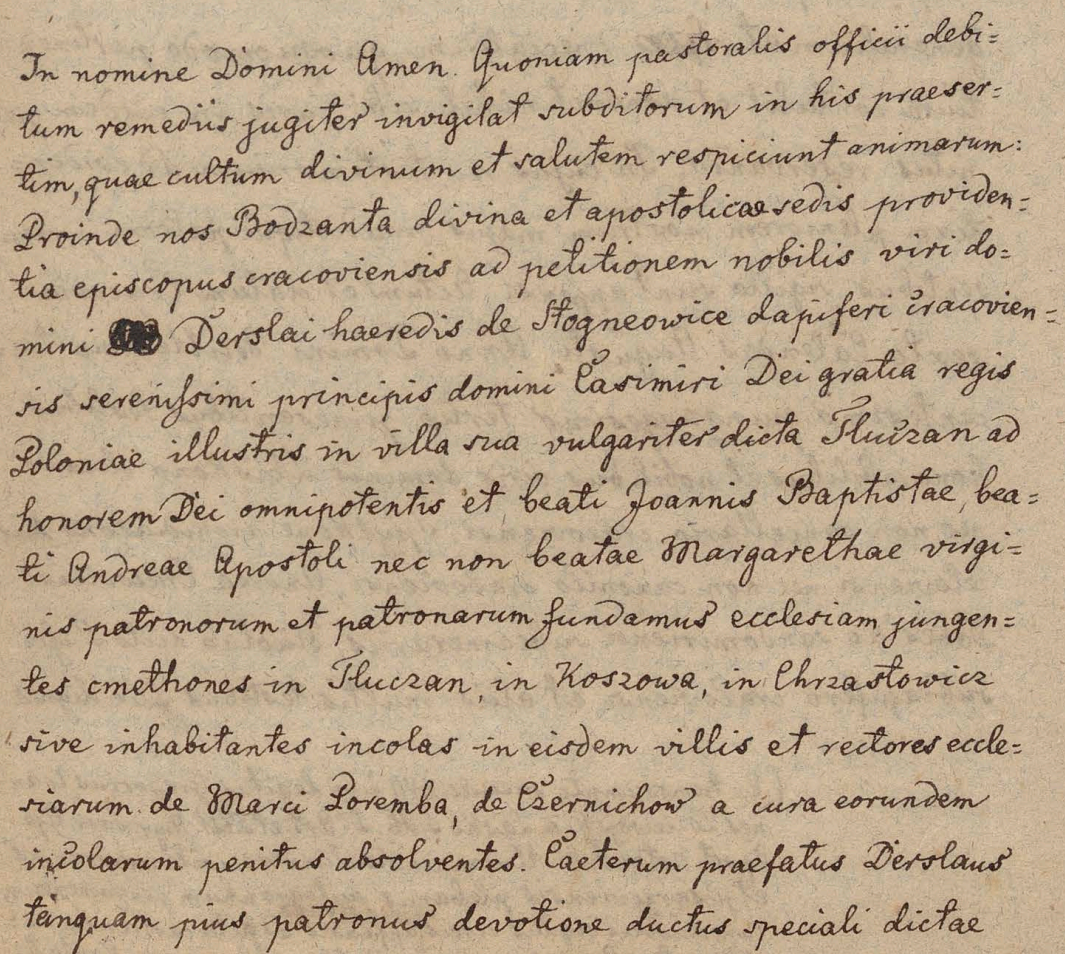 In nomine Domini Amen. Quoniam pastoralis officii debi=
tum remediis jugiter invigilat subditorum in his praeser=
tim, quae cultum divinum et salutem respiciunt animarum:
Proinde nos Bodzanta divina et apostolicae sedis providen=
tia episcopus cracoviensis ad petitionem nobilis viri do=
mini Derslai haeredis de Stogneowice dapiferi cracovien=
sis serenissimi principis domini Casimiri Dei gratia regis
Poloniae illustris in villa sua vulgariter dicta Tluczan ad
honorem Dei omnipotentis et beati Joannis Baptistae, bea=
ti Andreae Apostoli nec non beatae Margarethae virgi=
nis patronorum et patronarum fundamus ecclesiam jungen=
tes cmethones in Tluczan, in Koszowa, in Chrzastowicz
sive inhabitantes incolas in eisdem villis et rectores eccle=
siarum de Marci Poremba, de Czernichow a cura eorundem
incolarum penitus absolventes. Caeterum praefatus Derslaus
tanquam pius patronus devotione ductus speciali dictae